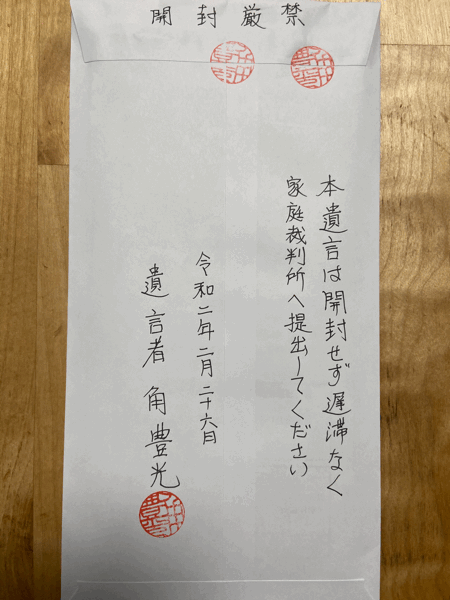 開封厳禁
本遺言は開封せず遅滞なく
家庭裁判所へ提出してください
令和二年二月二十六日
遺言者 角豊光